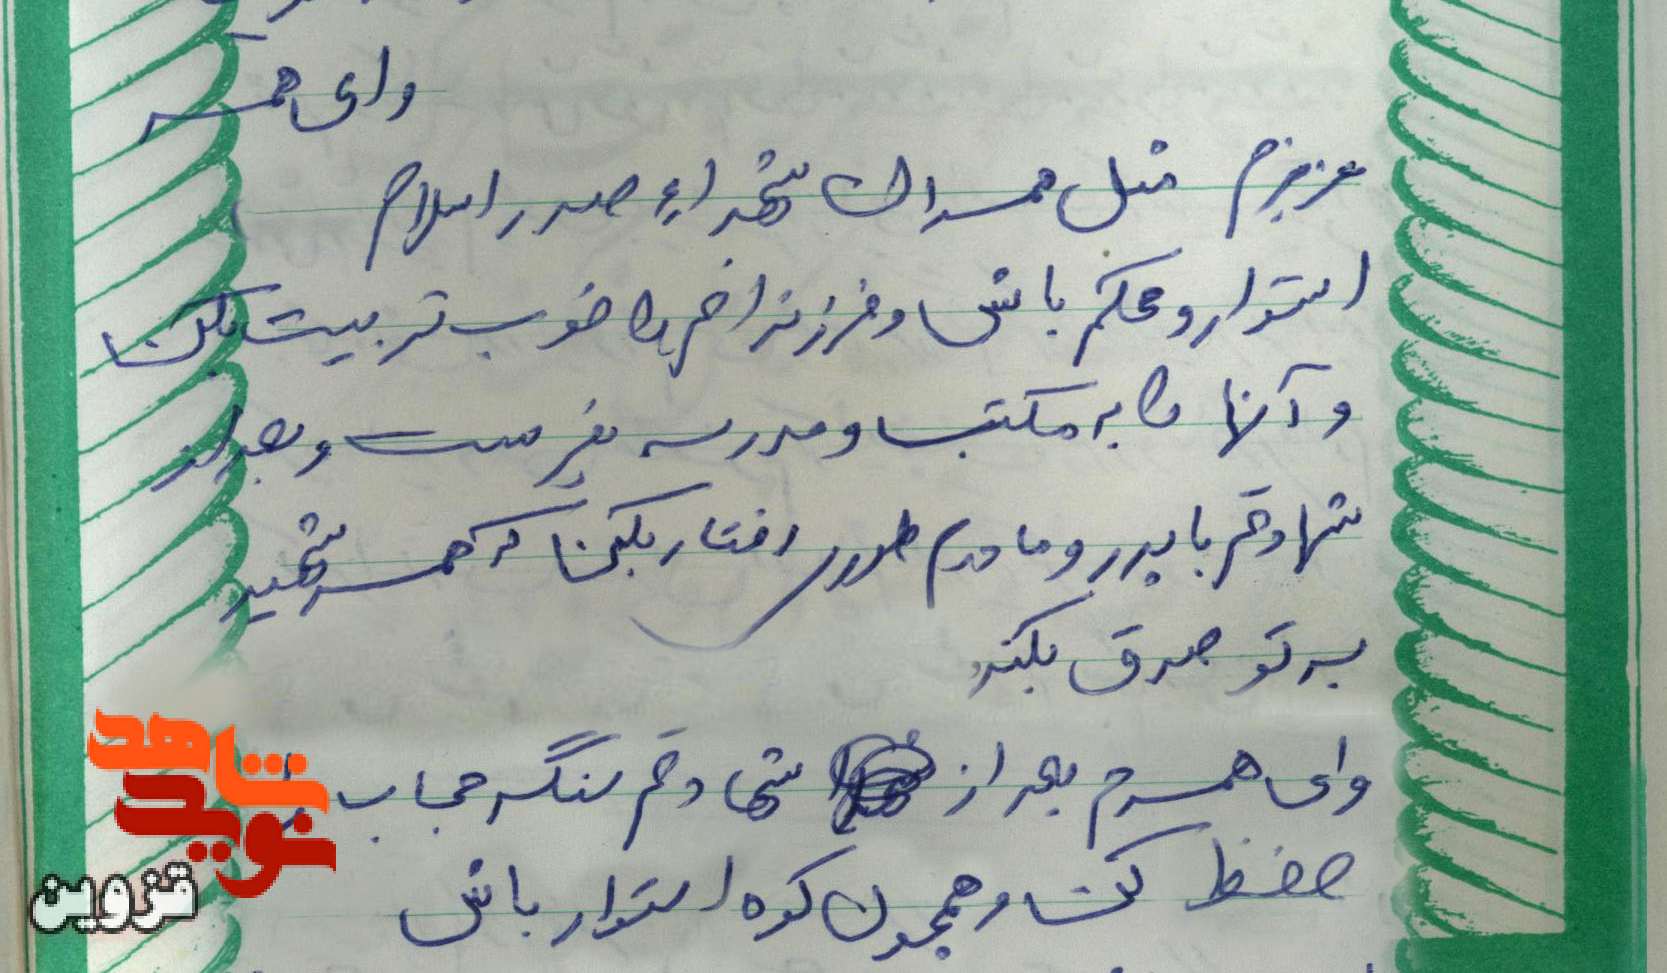 و ای همسر
عزیزم مثل همسران شهداء صدر اسلام
استوار و محکم باش و فرزندانم را خوب تربیت بکن
و آنها را به مکتب و مدرسه بفرست و بعد از
شهادتم با پدر و مادرم طوری رفتار بکن که همسر شهید
به تو صدق بکند
و ای همسرم بعد از شهادتم سنگر حجاب را
حفظ کن و همچون کوه استوار باش
شاهد
نوید
قزوین